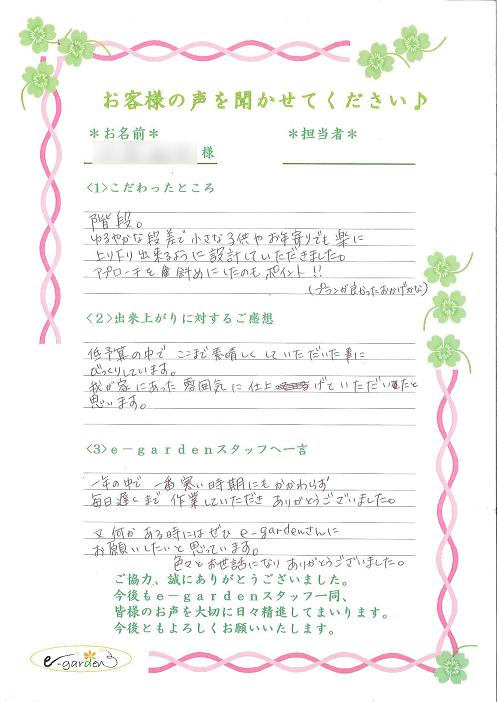 お客様の声を聞かせてください♪
＊お名前＊ ＊担当者＊
様
<1>こだわったところ
階段。
ゆるやかな段差で小さな子供やお年寄りでも楽に
上り下り出来るように設計していただきました。
アプローチを斜めにしたのもポイント!!
(プランが良かったおかげかな)
<2>出来上がりに対するご感想
低予算の中でここまで素晴しくしていただいた事に
びっくりしています。
我が家にあった雰囲気に仕上げていただいたと
思います。
<3>e-gardenスタッフへ一言
一年の中で一番寒い時期にもかかわらず
毎日遅くまで作業していただきありがとうございました。
又何かある時にはぜひe-gardenさんに
お願いしたいと思っています。
色々とお世話になりありがとうございました。
ご協力、誠にありがとうございました。
今後もe-gardenスタッフ一同、
皆様のお声を大切に日々精進してまいります。
今後ともよろしくお願いいたします。
e-garden